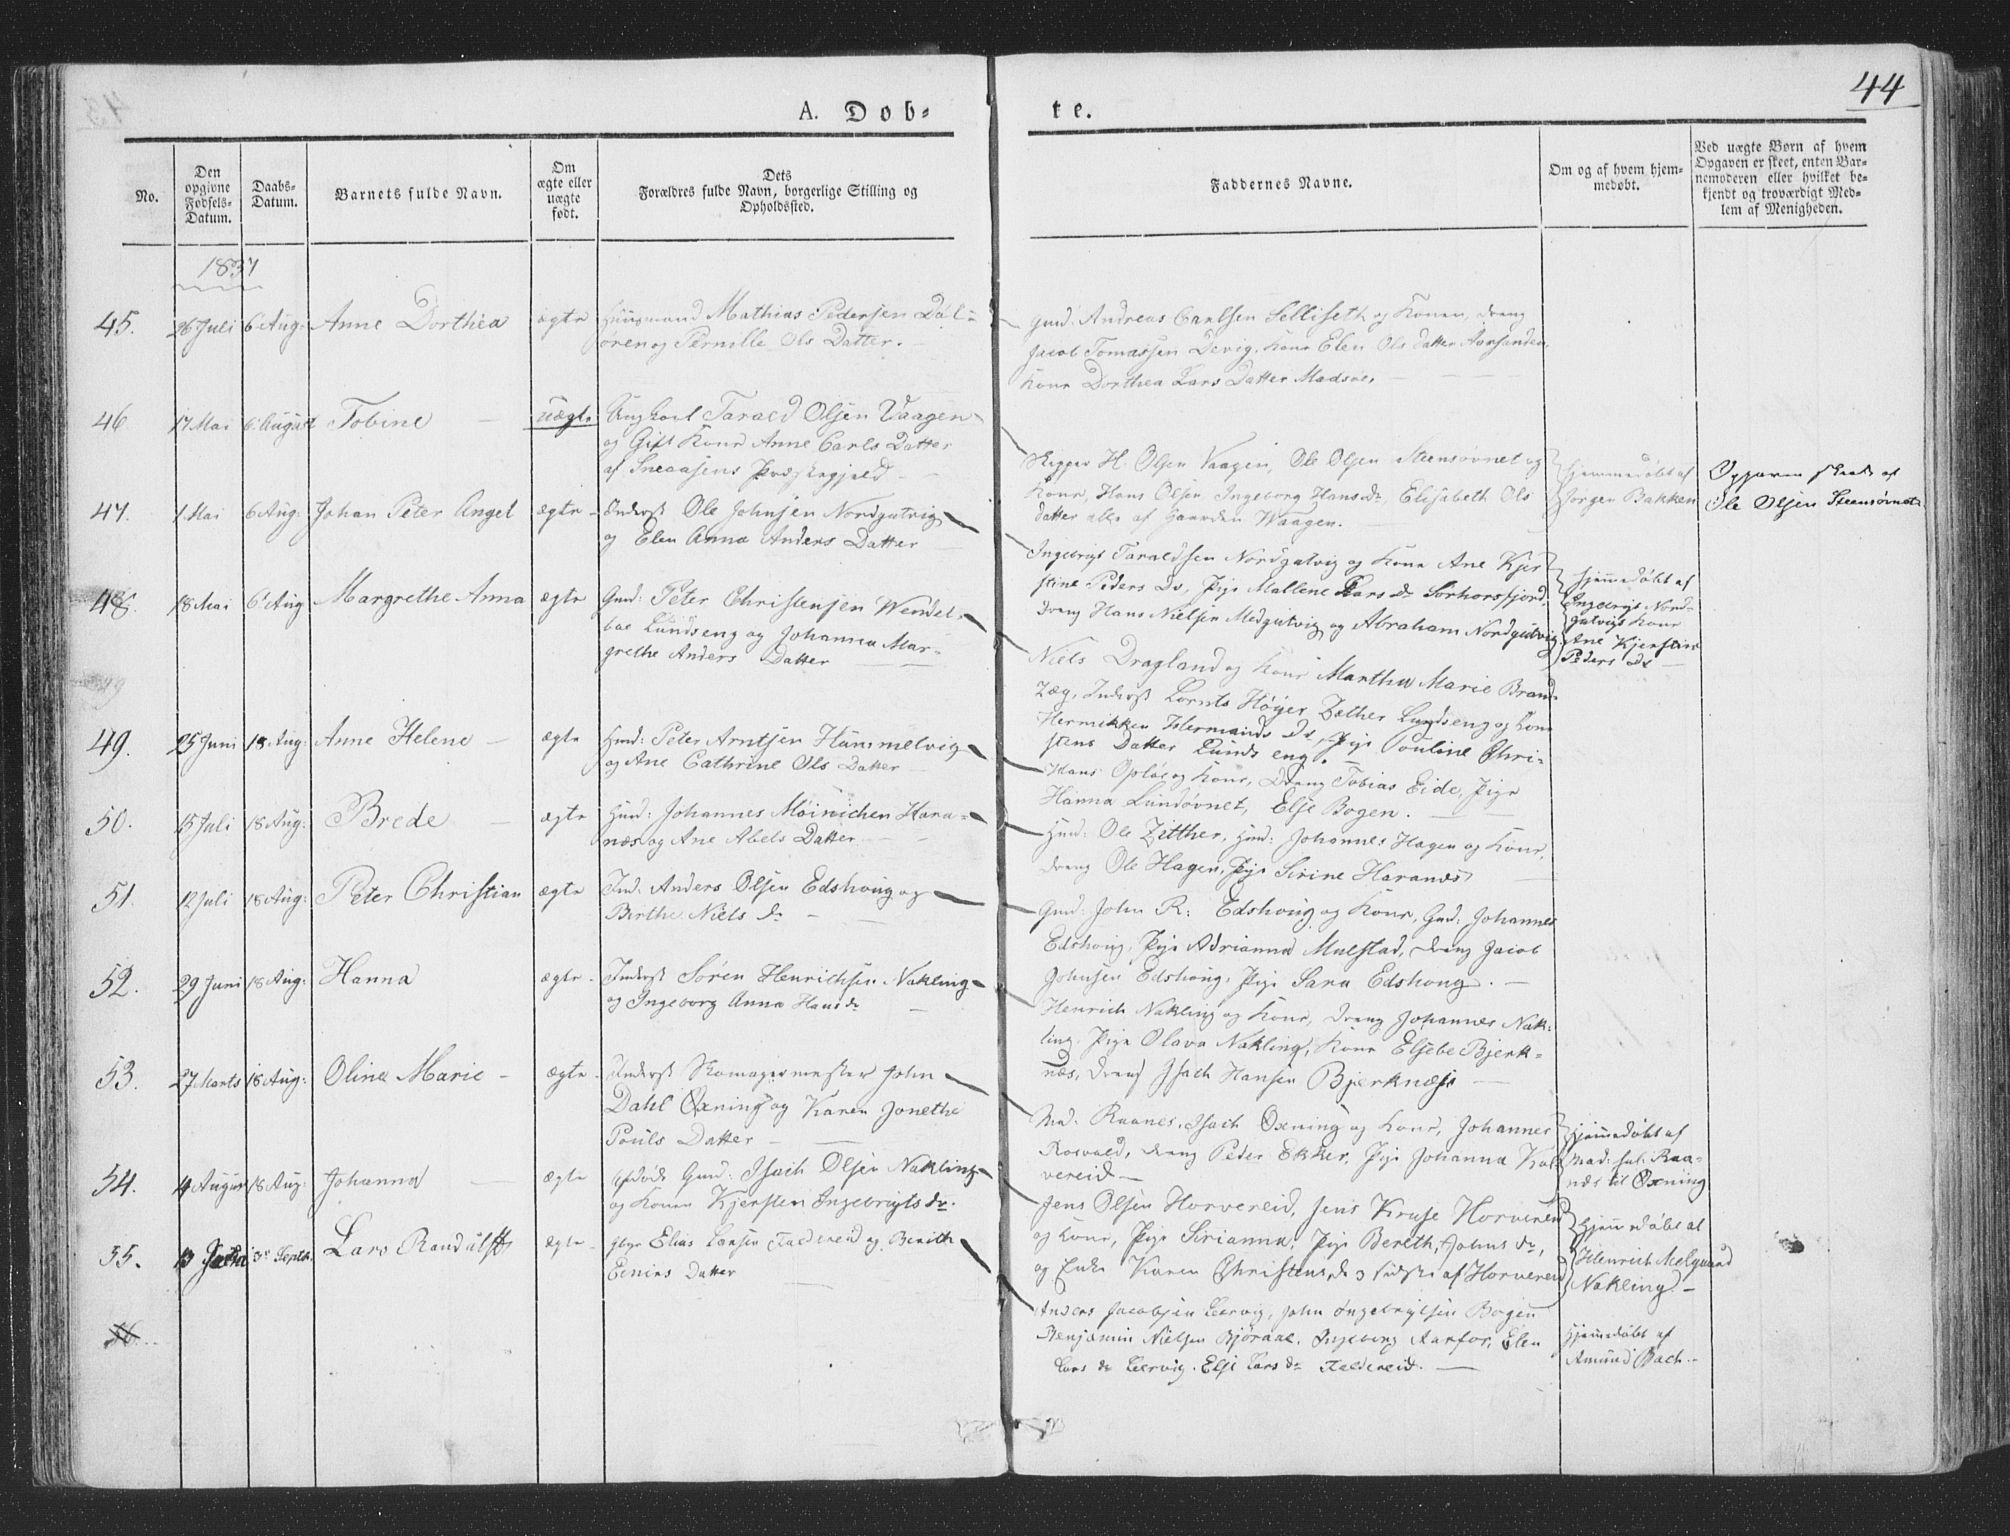 44
A. Døb-
te.
No.
Den opgivne Fødsels-Datum.
Daabs-Datum.
Barnets fulde Navn.
Om ægte eller uægte født.
Dets
Forældres fulde Navn, borgerlige Stilling og
Opholdssted.
Faddernes Navne.
Om og af hvem hjem-
medøbt.
Ved uægte Børn af hvem
Opgaven er skeet, enten Bar-
nemoderen eller hvilket be-
kjendt og troværdigt Med-
lem af Menigheden.
1837
45. 26 Juli 6 Aug: Anne Dorthea ægte Huusmand Mathias Pedersen Dal-
øren og Pernille Ols Datter.
Gmd: Andreas Carlsen Selliseth og Kone, Dreng
Jacob Tomassen Devig, Kone Elen Ols Datter Aarsanden
Kone Dorthea Lars Datter Madsøe,
46. 17 Mai 6 August Tobine uægte Ungkarl Tarald Olsen Vaagen
og Gift Kone Anne Carls Datter
af Sneaasens Præstegjeld
Skipper H. Olsen Vaagen, Ole Olsen Steensøvnet og
Kone, Hans Olsen, Ingeborg Hans Dr, Elisabeth Ols
Datter alle af Gaarden Waagen.
Hjemmedøbt af
Jørgen Bakken
Opgaven skeede af
Ole Olsen Steensøvnet
47. 1 Mai 6 Aug: Johan Peter Angel ægte Inderst Ole Johnsen Nordgutvig
og Elen Anna Anders Datter
Ingebrigt Taraldsen Nordgutvig og Kone Ane Kjer
stine Peders Dr, Pige Mallene Lars Dr Sørhorsfjord,
Dreng Hans Nielsen Medgutvig og Abraham Nordgutvig
Hjemmedøbt af
Ingebrigt Nord-
gutvigs Kone
Ane Kjerstine
Peders Dr
48. 18 Mai 6 Aug Margrethe Anna ægte Gmd: Peter Christensen Wendel-
boe Lundseng og Johanna Mar-
grethe Anders Datter
Niels Dragland og Kone Martha Marie Brand
Zæg, Inderst Lornts Høyer Zether Lundseng og Kone
Hermikken Hermands Dr, Pige Pouline Chri-
stens Datter Lundseng.
49. 25 Juni 18 Aug: Anne Helene ægte Huusd: Peter Arntsen Hammelvig
og Ane Cathrine Ols Datter
Hans Opløe og Kone, Dreng Tobias Eide, Pige
Hanna Lundøvnet, Else Bogen.
50. 15 Juli 18 Aug: Brede ægte Huusd: Johannes Møinichen Hara-
næs og Ane Abels Datter
Huusd: Ole Zitther, Huusd: Johannes Hagen og Kone,
Dreng Ole Hagen, Pige Sirine Haranæs
51. 12 Juli 18 Aug: Peter Christian ægte Ind: Anders Olsen Edshoug og
Birthe Niels Dr
Gmd: John R: Edshoug og Kone, Gmd: Johannes
Edshoug, Pige Adrianna Mulstad, Dreng Jacob
Johnsen Edshoug, Pige Sara Edshoug.
52. 29 Juni 18 Aug: Hanna ægte Inderst Søren Henrichsen Nakling
og Ingeborg Anna Hans Dr
Henrich Nakling og Kone, Dreng Johannes Nak-
ling, Pige Olava Nakling, Kone Elsebe Bjerk-
næs, Dreng Isach Hansen Bjerknæs
53. 27 Marts 18 Aug: Olina Marie ægte Inderst Skomagermester John
Dahl Oxning og Karen Jonethe
Pouls Datter
Mad. Raanes, Isach Oxning og Kone, Johannes
Rosvold, Dreng Peder Ekker, Pige Johanna Kol-
vereid
Hjemmedøbt af
Mad: sal: Raa-
næs til Oxning
54. 4 August 18 Aug: Johanna ægte Afdøde Gmd: Isach Olsen Nakling
og Konen Kjersten Ingebrigts Dr.
Jens Olsen Horvereid, Jens Kruse Horvereid
og Kone, Pige Sirianna, Pige Bereth Johns Dr,
og Enke Karen Christens Dr 3 sidste af Horvereid
Hjemmedøbt af
Henrich Melgaard
Nakling
55. 13 3 Septbr. Lars Randulf ægte Elias Larsen Kaldereid og Berith
Einers Datter
Anders Jacobsen Leervig, John Ingebrigtsen Bogen
Benjamin Nielsen Bjøraae, Ingeborg Aarfor, Elen
Lars Dr Leervig, Else Lars Dr Kaldereid.
Hjemmedøbt af
Amund Bach
56.